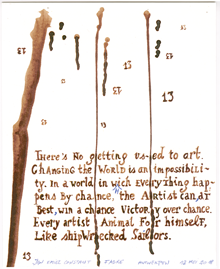 13
13
13
13
13
13
There's No getting used to art.
Changing the World is an impossibili-
ty. In a world in which Everything hap-
pens By chance, the Artist can at
Best, win a chance Victory over chance.
Every artist Animal For himself,
Like shipWrecked Sailors.
13